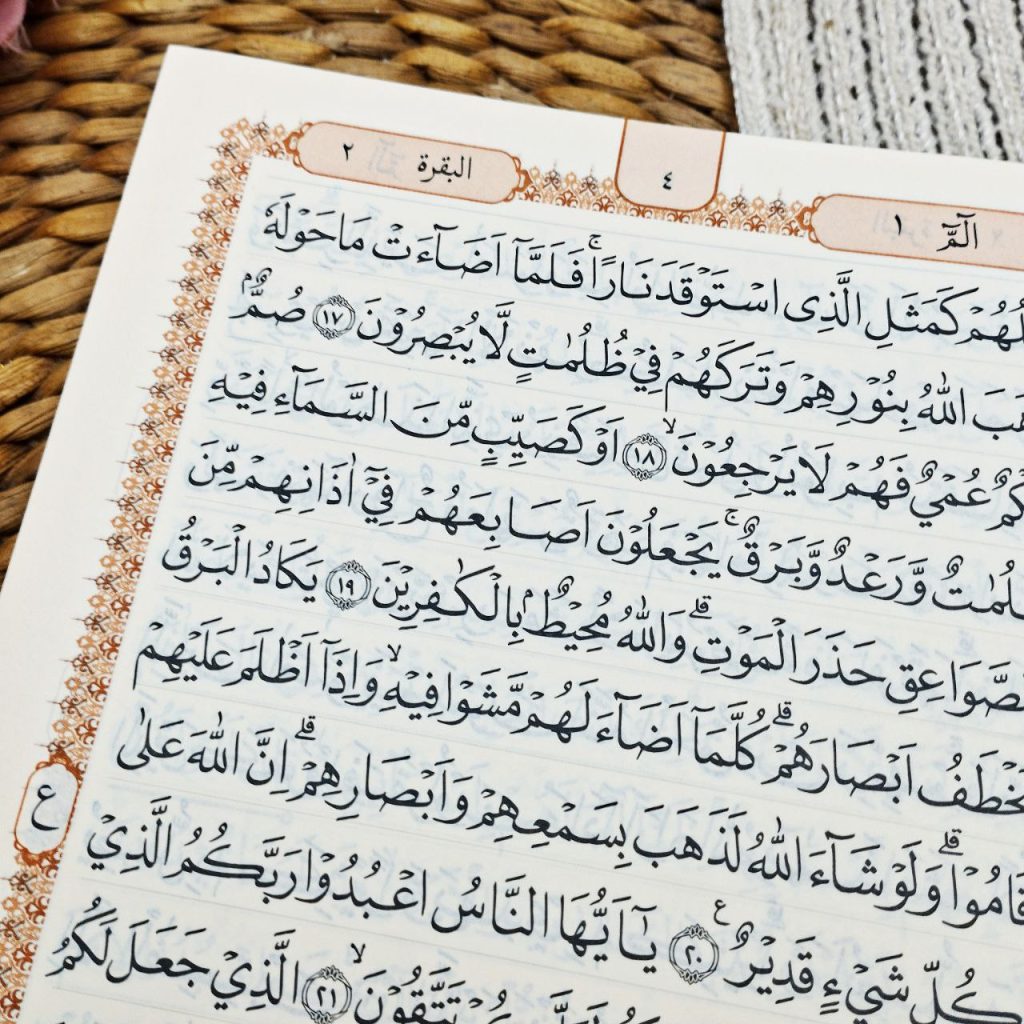 الٓمّٓ ١
٤
البقرة ٢
لُهُمۡ كَمَثَلِ الَّذِى اسۡتَوۡقَدَ نَارًا ۚ فَلَمَّآ اَضَآءَتۡ مَا حَوۡلَهٗ
هَبَ اللّٰهُ بِنُوۡرِهِمۡ وَتَرَكَهُمۡ فِىۡ ظُلُمٰتٍ لَّا يُبۡصِرُوۡنَ ﴿١٧﴾ صُمٌّۢ
كۡمٌ عُمۡىٌ فَهُمۡ لَا يَرۡجِعُوۡنَ ۙ ﴿١٨﴾ اَوۡ كَصَيِّبٍ مِّنَ السَّمَآءِ فِيۡهِ
لُمٰتٌ وَّرَعۡدٌ وَّبَرۡقٌ ۚ يَجۡعَلُوۡنَ اَصَابِعَهُمۡ فِىۡٓ اٰذَانِهِمۡ مِّنَ
صَّوَاعِقِ حَذَرَ الۡمَوۡتِ ؕ وَاللّٰهُ مُحِيۡطٌۢ بِالۡكٰفِرِيۡنَ ﴿١٩﴾ يَكَادُ الۡبَرۡقُ
خۡطَفُ اَبۡصَارَهُمۡ ؕ كُلَّمَآ اَضَآءَ لَهُمۡ مَّشَوۡا فِيۡهِ ۙ وَاِذَآ اَظۡلَمَ عَلَيۡهِمۡ
قَامُوۡا ؕ وَلَوۡ شَآءَ اللّٰهُ لَذَهَبَ بِسَمۡعِهِمۡ وَاَبۡصَارِهِمۡ ؕ اِنَّ اللّٰهَ عَلٰى
كُلِّ شَىۡءٍ قَدِيۡرٌ ﴿٢٠﴾ ع يٰٓاَيُّهَا النَّاسُ اعۡبُدُوۡا رَبَّكُمُ الَّذِىۡ
تَتَّقُوۡنَ ۙ ﴿٢١﴾ الَّذِىۡ جَعَلَ لَكُمُ
ع